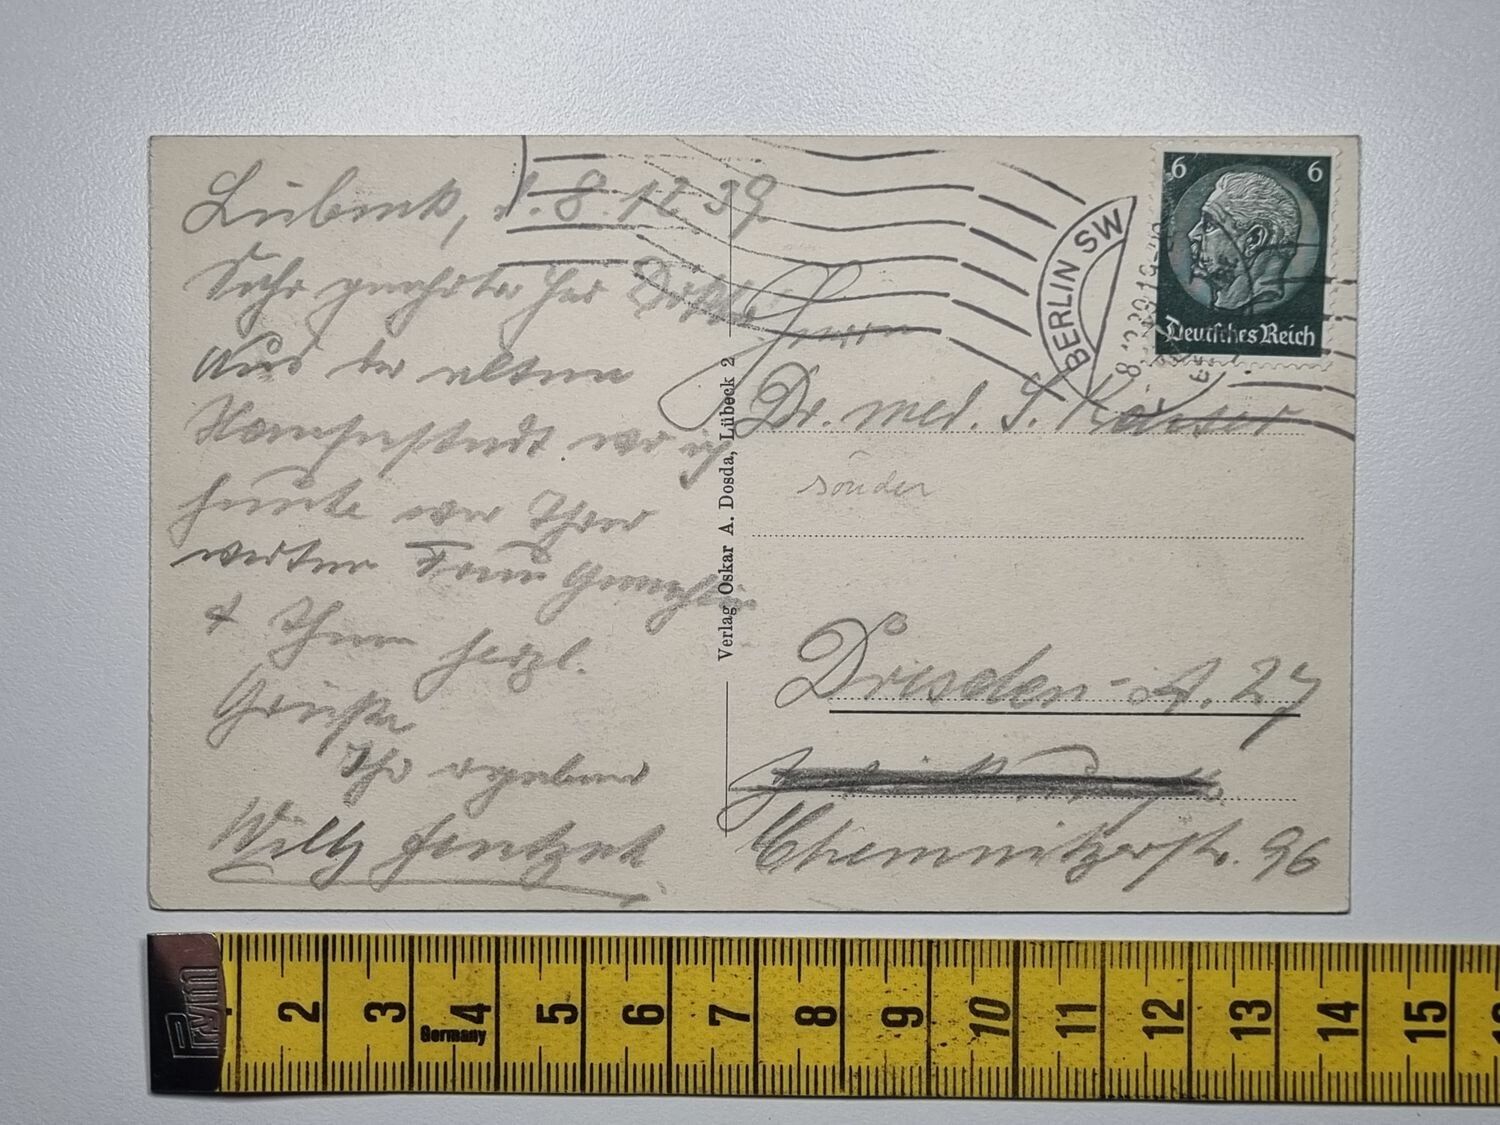 Lübeck, d. 8.12.39.
Sehr geehrter Herr Doktor
Aus der alten
Hansestadt wo ich
heute war Ihrer
werten Frau Gemahlin
& Ihnen herzl.
Grüße
Ihr ergebener
Willy
Verlag Oskar A. Dosda, Lübeck 2
BERLIN SW
6 6
Deutsches Reich
Herrn
Dr. med. S. Kaiser
sönder
Dresden-A. 27
Chemnitzerstr. 96
Prym
Germany
2 3 4 5 6 7 8 9 10 11 12 13 14 15